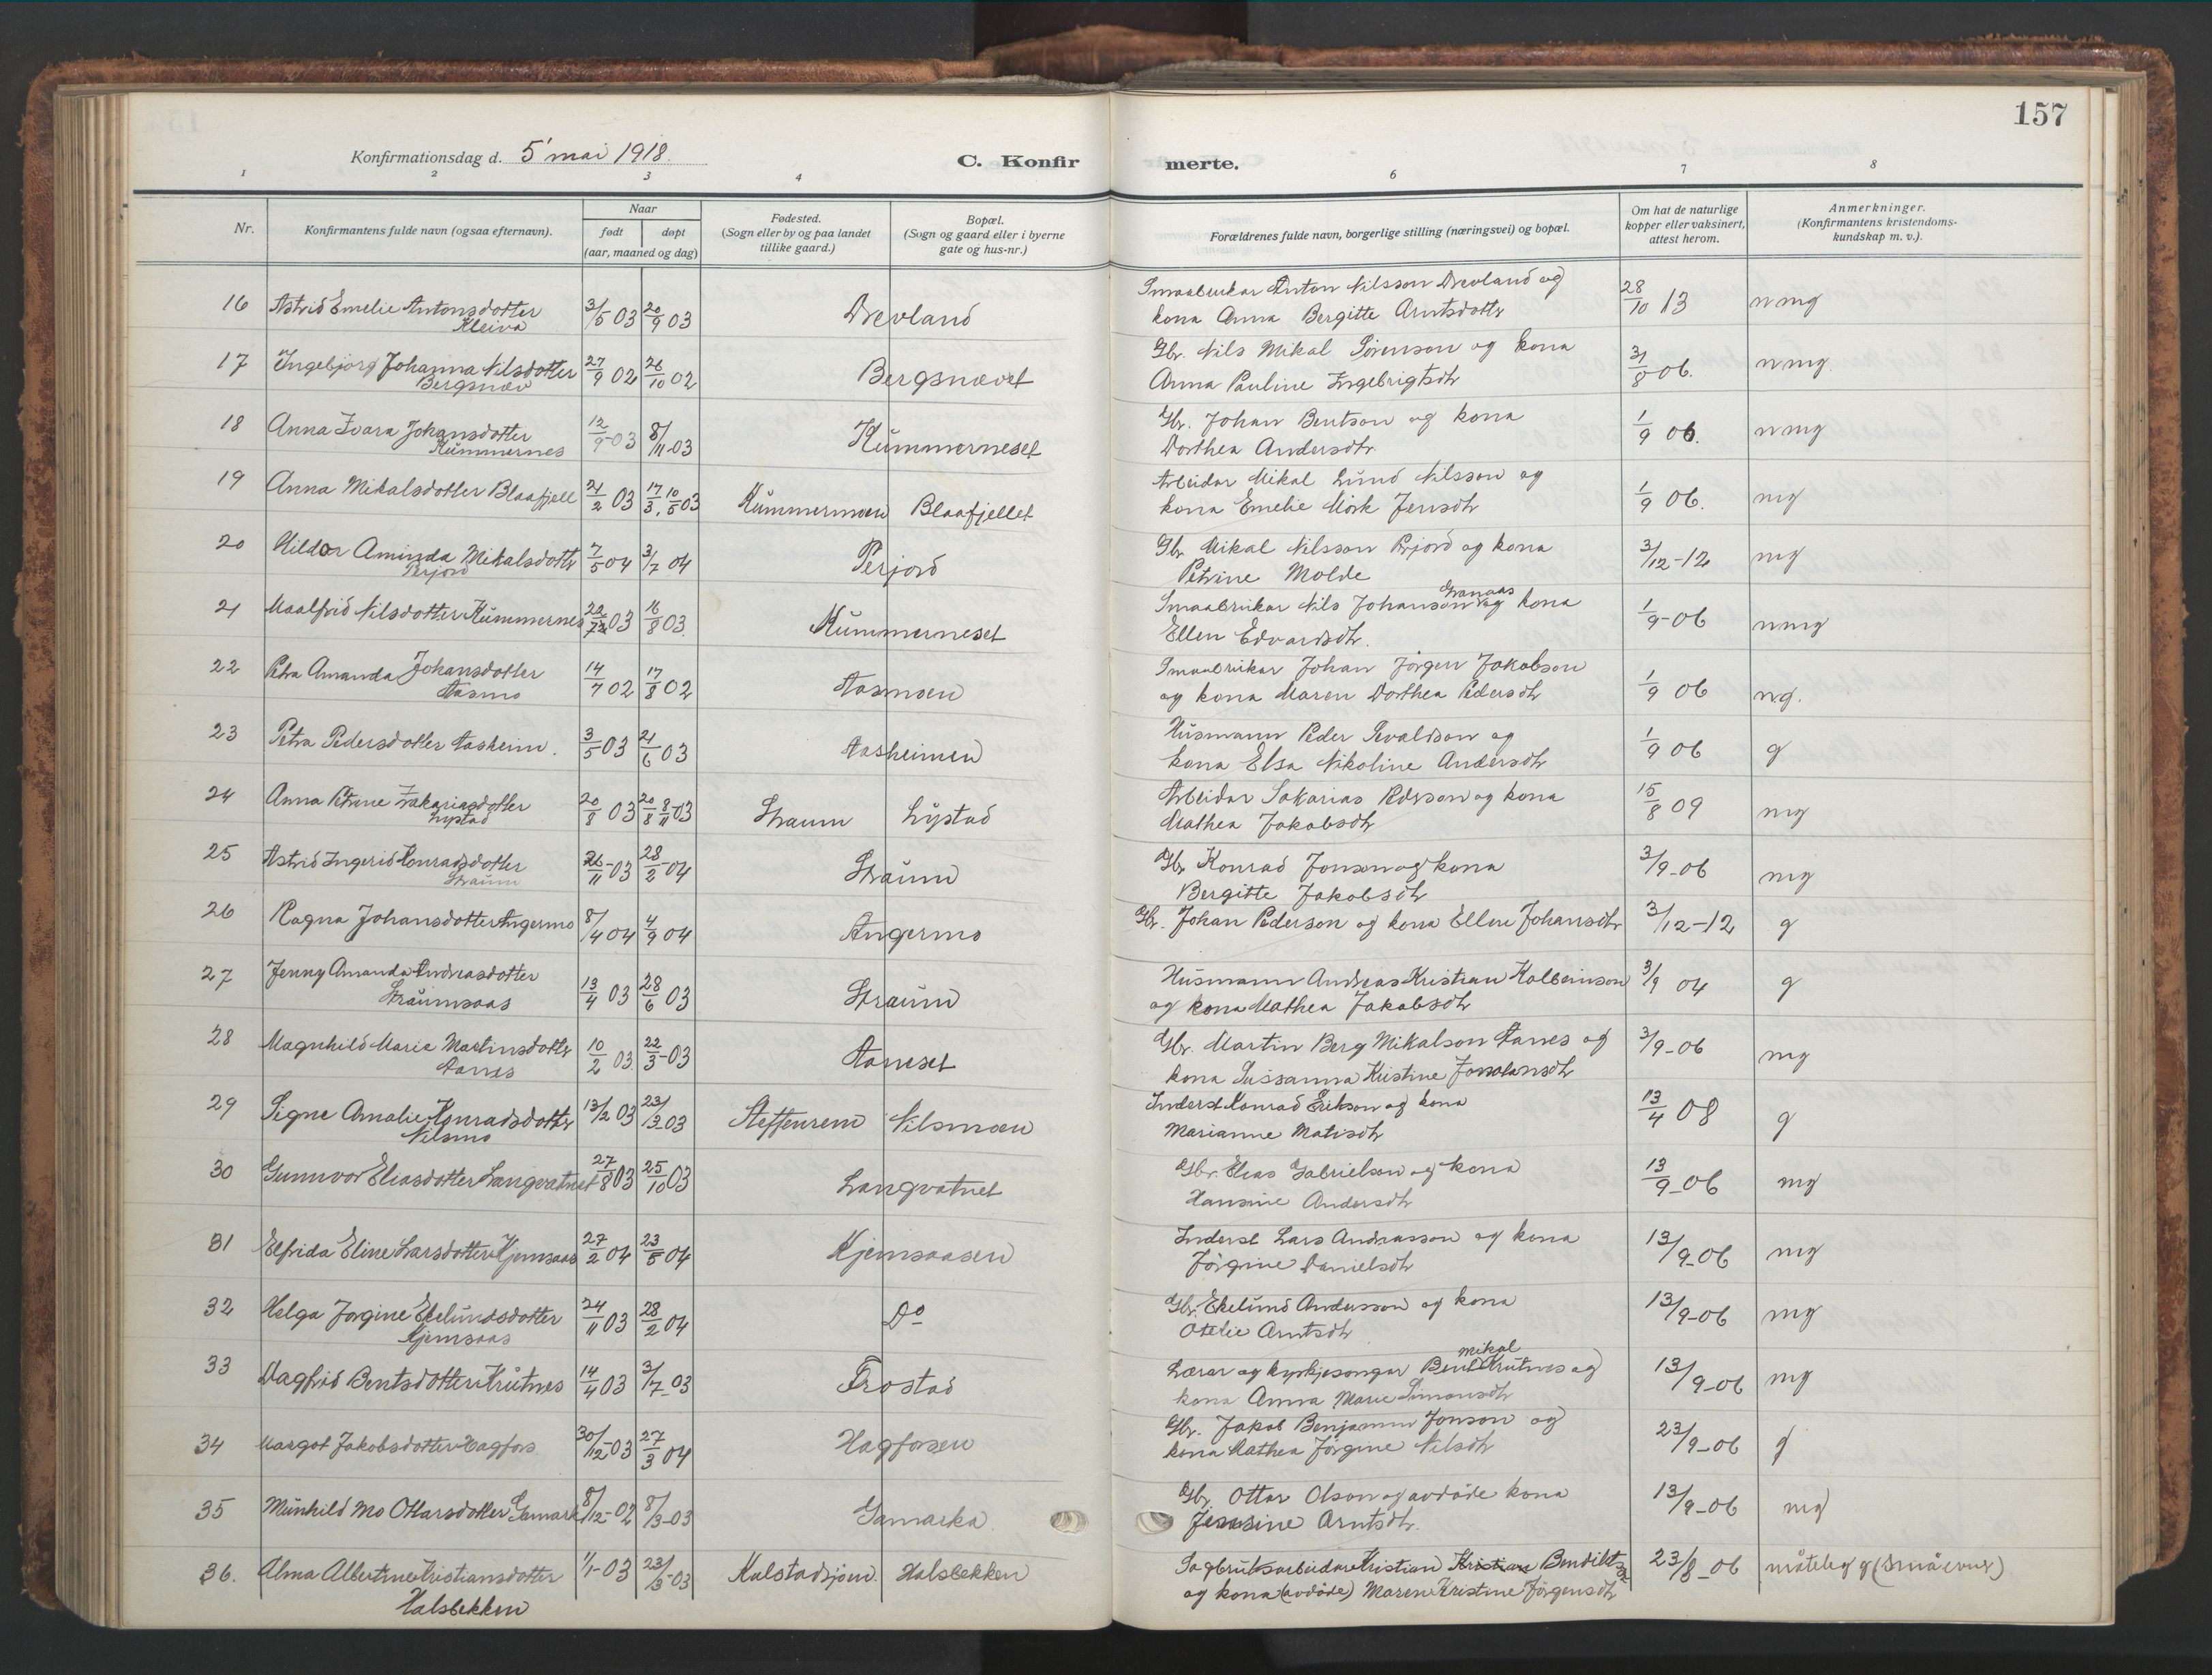 157
Konfirmationsdag d. 5' mai 1918.
C. Konfir merte.
1 2 3 4 6 7 8
Nr.
Konfirmantens fulde navn (ogsaa efternavn).
Naar
født døpt
(aar, maaned og dag)
Fødested.
(Sogn eller by og paa landet
tillike gaard.)
Bopæl.
(Sogn og gaard eller i byerne
gate og hus-nr.)
Forældrenes fulde navn, borgerlige stilling (næringsvei) og bopæl.
Om hat de naturlige
kopper eller vaksinert,
attest herom.
Anmerkninger.
(Konfirmantens kristendoms-
kundskap m. v.).
16 Astrid Emelie Antonsdotter 3/5 03 20/9 03 Drevland Smaabrukar Anton Nilsson Drevland og 28/10 13 nmg
Kleiva kona Anna Bergitte Arntsdottr
17 Ingebjorg Johanna Nilsdotter 27/9 02 26/10 02 Bergsnævet Gbr. Nils Mikal Sörenson og kona 31/8-06. nmg
Bergsnæv Anna Pauline Ingebrigtsdtr
18 Anna Ivara Johansdotter 12/9-03 8/11-03 Kummerneset Gbr. Johan Bentson og kona 1/9 06. nmg
Kummernes Dorthea Andersdtr
19 Anna Mikalsdotter Blaafjell 21/2 03 17/3, 10/5 03 Kummermoen Blaafjellet Arbeidar Mikal Lund Nilsson og 1/9 06. mg
kona Emelie Mörk Jensdtr
20 Hildor Aminda Mikalsdottr 7/5 04 3/7 04 Perjord Gbr Mikal Nilsson Perjord og kona 3/12-12 mg
Perjord Petrine Molde
21 Maalfrid Nilsdotter Kummernes 22/7 03 16/8 03. Kummerneset Smaabrukar Nils Johanson Granaas og kona 1/9-06 nmg
Ellen Edvardsdtr.
22 Petra Amanda Johansdotter 14/7 02 17/8 02 Aasmoen Smaabrukar Johan Jörgen Jakobson 1/9 06 ng.
Aasmo og kona Maren Dorthea Pedersdtr
23 Petra Pedersdotter Aasheim. 3/5 03 21/6 03 Aasheimen Husmann Peder Sevaldson og 1/9 06 g
kona Elsa Nikoline Andersdtr
24 Anna Petrine Zakariasdotter 20/8 03 20/8 8/11-03 Straum Lystad Arbeidar Sakarias Pederson og kona 15/8 09 mg
Lystad Mathea Jakobsdtr
25 Astrid Ingerid Konradsdotter 26/11-03 28/2-04 Straum Gbr Konrad Jonson og kona 3/9-06 mg
Straum Bergitte Jakobsdtr
26 Ragna Johansdotter Angermo 8/4 04 4/9 04 Angermo Gbr. Johan Pederson og kona Ellen Johansdtr 3/12-12 g
27 Jenny Amanda Andreasdotter 13/4 03 28/6 03 Straum Husmann Andreas Kristian Kolbeinson 3/9 04 g
Straumsaas og kona Mathea Jakobsdtr
28 Magnhild Marie Martinsdottr 10/2 03. 22/3-03 Aaneset Gbr. Martin Berg Mikalson Aanes og 3/9-06 mg
Aanes kona Sussanna Kristine Jonatansdtr
29 Signe Amalie Konradsdottr 13/2 03 23/3-03 Steffenrem Nilsmoen Inderst Konrad Erikson og kona 13/4 08 g
Nilsmo Marianne Matisdtr
30 Gunnvor Eliasdotter Langvatnet 27/8 03 25/10 03 Langvatnet Gbr. Elias Gabrielson og kona 13/9-06 mg
Hansine Andersdtr
31 Elfrida Eline Larsdotter Kjemsaas 27/2 04 23/5 04 Kjemsaasen Inderst Lars Andreasson og kona 13/9-06 mg
Jörgine Danielsdtr
32 Helga Jorgine Ekelundsdotter 24/11 03 28/2 04 Do Gbr. Ekelund Andersson og kona 13/9-06 mg
Kjemsaas Otelie Arntsdtr
33 Dagfrid Bentsdotter Krutnes 14/4 03 3/7-03 Frostad Lærar og kyrkjesongar Bent Mikal Krutnes og 13/9-06 mg
kona Anna Marie Simonsdtr
34 Margot Jakobsdotter Hagfors 30/12-03 27/3 04 Hagforsen Gbr. Jakob Benjamin Jonson og 23/9-06 g
kona Mathea Jörgine Nilsdtr
35 Munhild Mo Ottarsdotter Gamark 8/12-02 8/3-03 Gamarka. Gbr. Ottar Olson og avdöde kona 13/9-06 mg
Jensine Arntsdtr.
36. Alma Albertine Kristiansdotter 1/1-03 23/3-03 Kalstadsjöen. Halsbekken Sagbruksarbeidar Kristian Kristian Bendiktson 23/8-06 måteleg g (små evner)
Halsbekken og kona (avdöde) Maren Kristine Jörgensdtr